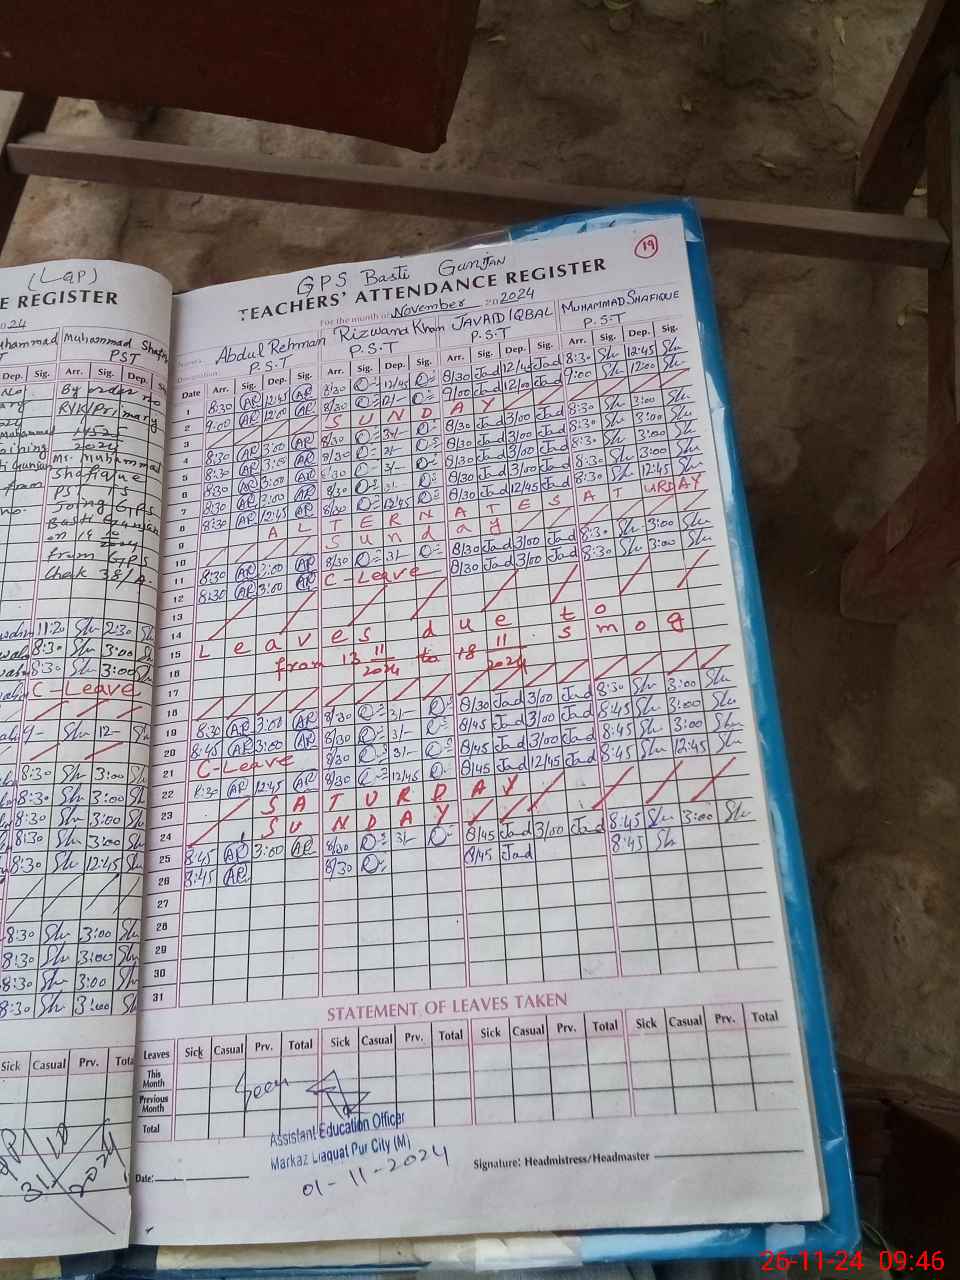 (Lap)
E REGISTER
2024
Muhammad Shafiq
PST
Dep. Sig. Arr. Sig. Dep. Sig.
By order no
RYK/Primary
14525
2024
Mr. Muhammad
Shafique
PST
Joing GPS
Basti Gunjan
on 19 10/2024
from GPS
Chak 38/A
11:20 Sh 2:30 Sh
8:30 Sh 3:00 Sh
8:30 Sh 3:00 Sh
C-Leave
9- Sh 12- Sh
8:30 Sh 3:00 Sh
8:30 Sh 3:00 Sh
8:30 Sh 3:00 Sh
8:30 Sh 3:00 Sh
8:30 Sh 12:45 Sh
8:30 Sh 3:00 Sh
8:30 Sh 3:00 Sh
8:30 Sh 3:00 Sh
8:30 Sh 3:00 Sh
Sick Casual Prv. Total
19
GPS Basti Gunjan
TEACHERS' ATTENDANCE REGISTER
For the month of November 2024
Abdul Rehman Rizwana Khan JAVAID IQBAL MUHAMMAD SHAFIQUE
P.S.T P.S.T P.S.T P.S.T
Date Arr. Sig. Dep. Sig. Arr. Sig. Dep. Sig. Arr. Sig. Dep. Sig. Arr. Sig. Dep. Sig.
1 8:30 AR 12:45 AR 8/30 12/45 8/30 Jad 12/45 Jad 8:30 Sh 12:45 Sh
2 9:00 AR 12:00 AR 8/30 12/- 9/00 Jad 12/00 Jad 9:00 Sh 12:00 Sh
3 SUNDAY
4 8:30 AR 3:00 AR 8/30 3/- 8/30 Jad 3/00 Jad 8:30 Sh 3:00 Sh
5 8:30 AR 3:00 AR 8/30 3/- 8/30 Jad 3/00 Jad 8:30 Sh 3:00 Sh
6 8:30 AR 3:00 AR 8/30 3/- 8/30 Jad 3/00 Jad 8:30 Sh 3:00 Sh
7 8:30 AR 3:00 AR 8/30 3/- 8/30 Jad 3/00 Jad 8:30 Sh 3:00 Sh
8 8:30 AR 12:45 AR 8/30 12/45 8/30 Jad 12/45 Jad 8:30 Sh 12:45 Sh
9 ALTERNATE SATURDAY
10 Sunday
11 8:30 AR 3:00 AR 8/30 3/- 8/30 Jad 3/00 Jad 8:30 Sh 3:00 Sh
12 8:30 AR 3:00 AR C-Leave 8/30 Jad 3/00 Jad 8:30 Sh 3:00 Sh
13
14
15 Leaves due to smog
16 from 13 11/2024 to 18 11/2024
17
18
19 8:30 AR 3:00 AR 8/30 3/- 8/30 Jad 3/00 Jad 8:30 Sh 3:00 Sh
20 8:45 AR 3:00 AR 8/30 3/- 8/45 Jad 3/00 Jad 8:45 Sh 3:00 Sh
21 C-Leave 8/30 3/- 8/45 Jad 3/00 Jad 8:45 Sh 3:00 Sh
22 8:30 AR 12:45 AR 8/30 12/45 8/45 Jad 12/45 Jad 8:45 Sh 12:45 Sh
23 SATURDAY
24 SUNDAY
25 8:45 AR 3:00 AR 8/30 3/- 8/45 Jad 3/00 Jad 8:45 Sh 3:00 Sh
26 8:45 AR 8/30 8/45 Jad 8:45 Sh
27
28
29
30
31
STATEMENT OF LEAVES TAKEN
Leaves Sick Casual Prv. Total Sick Casual Prv. Total Sick Casual Prv. Total Sick Casual Prv. Total
This Month
Previous Month
Total
Seen
Assistant Education Officer
Markaz Liaquat Pur City (M)
01-11-2024
Date: Signature: Headmistress/Headmaster
26-11-24 09:46